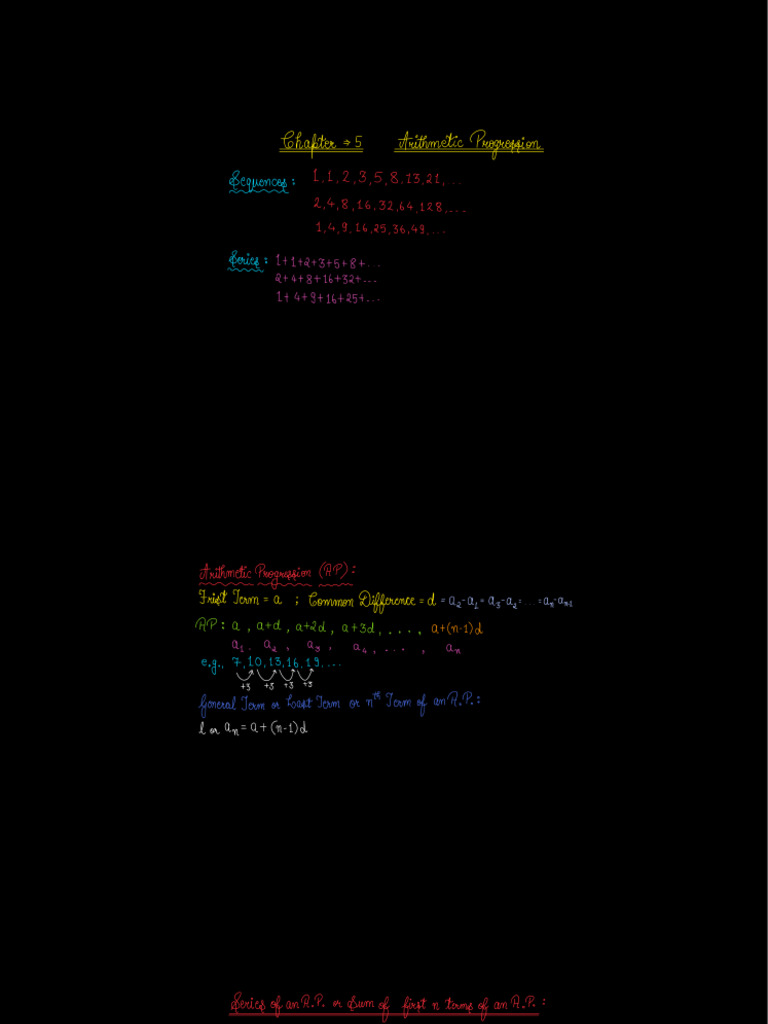 Chapter → 5 Arithmetic Progression
Sequences : 1,1,2,3,5,8,13,21,...
2,4,8,16,32,64,128,...
1,4,9,16,25,36,49,...
Series : 1+1+2+3+5+8+...
2+4+8+16+32+...
1+4+9+16+25+...
Arithmetic Progression (AP) :
Frist Term = a ; Common Difference = d = a₂-a₁ = a₃-a₂ = ... = aₙ-aₙ₋₁
AP : a , a+d , a+2d , a+3d , . . . . , a+(n-1)d
a₁ , a₂ , a₃ , a₄ , . . . , aₙ
e.g., 7,10,13,16,19,...
+3 +3 +3 +3
General Term or Last Term or nᵗʰ Term of an A.P. :
l or aₙ = a + (n-1)d
Series of an A.P. or Sum of first n terms of an A.P. :